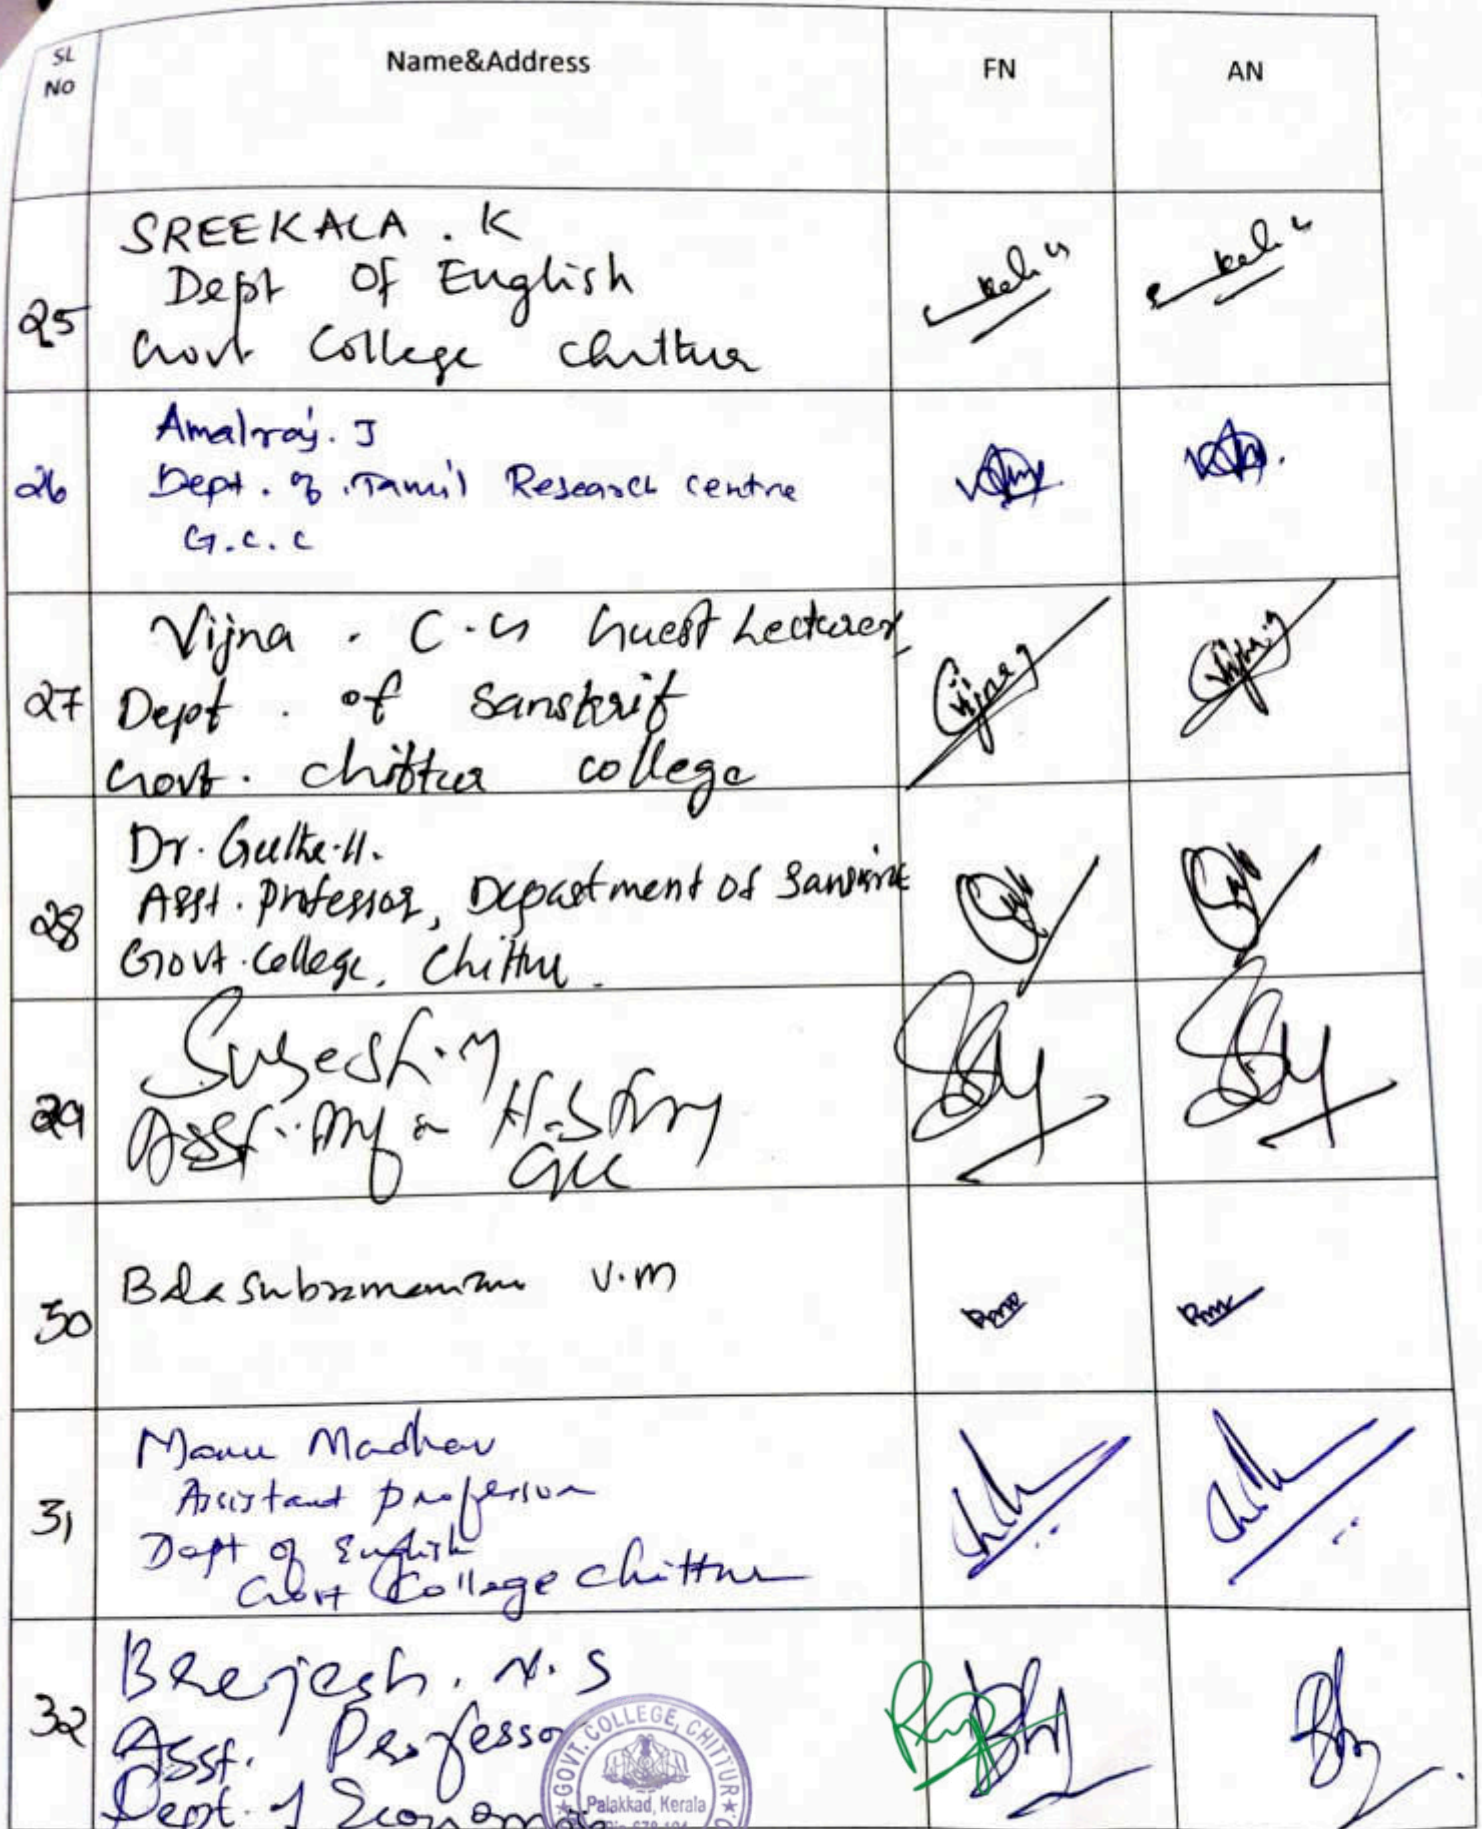 SL NO Name&Address FN AN
25 SREEKALA . K
Dept Of English
Govt College Chittur
26 Amalraj. J
Dept. of Tamil Research centre
G.C.C
27 Vijna . C.G Guest Lecturer,
Dept . of Sanskrit
Govt. Chittur college
28 Dr. Geetha.H.
Asst. Professor, Department of Sanskrit
Govt. College, Chittur.
29
Asst. Prof in History
GCC
30 Balasubramanian V.M
31 Manu Madhav
Assistant professor
Dept of English
Govt College Chittur
32 Brejesh. N.S
Asst. Professor
Dept. of Economics
GOVT. COLLEGE, CHITTUR
Palakkad, Kerala